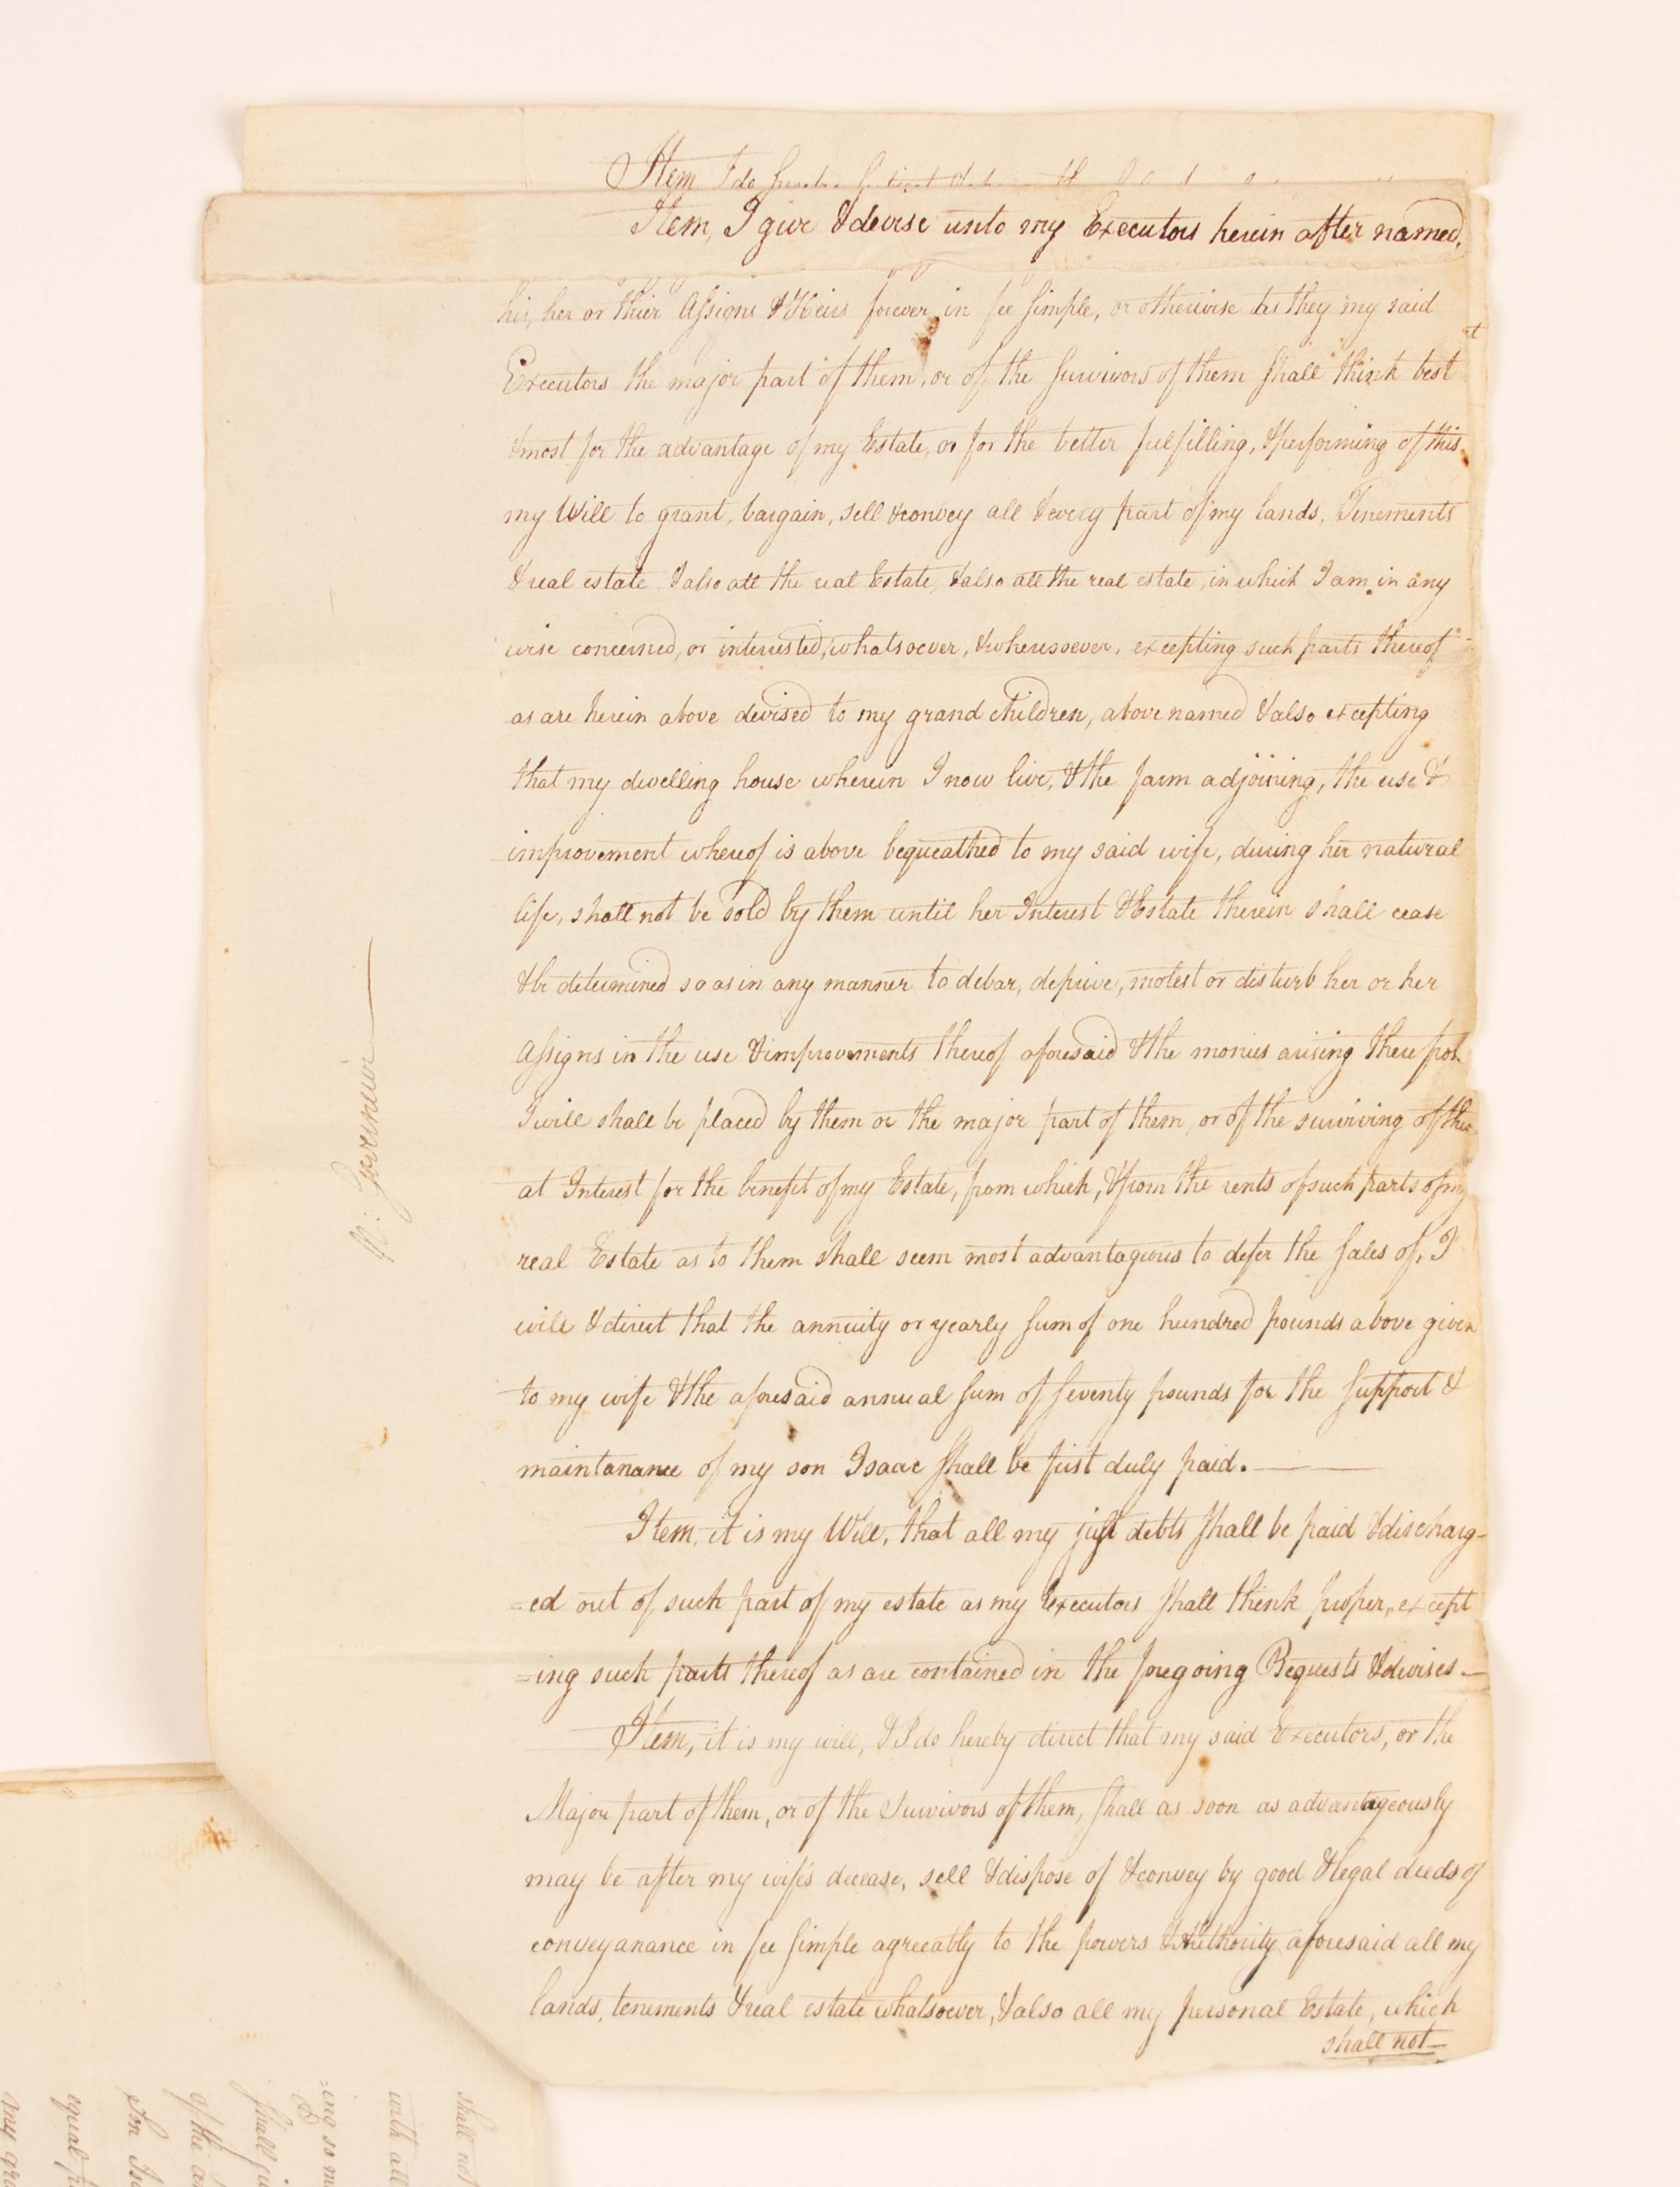 Item I do
Item, I give & devise unto my Executors herein after named,
his, her or thier Assigns & Heirs forever in fee simple, or otherwise as they my said
Executors the major part of them, or of the survivors of them shall think best
& most for the advantage of my Estate, or for the better fulfilling, & performing of this
my Will to grant, bargain, sell & convey all & every part of my lands, Tenements
& real estate & also all the real Estate, & also all the real estate, in which I am in any
wise concerned, or interested, whatsoever, & wheresoever, excepting such parts thereof
as are herein above devised to my grand children, above named & also excepting
that my dwelling house wherein I now live, & the farm adjoining, the use &
improvement whereof is above bequeathed to my said wife, during her natural
life, shall not be sold by them until her Interest & Estate therein shall cease
& be determined so as in any manner to debar, deprive, molest or disturb her or her
Assigns in the use & improvements thereof aforesaid & the monies arising there
I will shall be placed by them or the major part of them, or of the surviving of
at Interest for the benefit of my Estate, from which, & from the rents of such parts of my
real Estate as to them shall seem most advantageous to defer the sales of, I
will & direct that the annuity or yearly sum of one hundred pounds above given
to my wife & the aforesaid annual sum of seventy pounds for the support &
maintanance of my son Isaac shall be first duly paid.
Item, it is my Will, that all my just debts shall be paid & discharg-
=ed out of such part of my estate as my Executors shall think proper, except
=ing such parts thereof as are contained in the foregoing Bequests & devises.
Item, it is my will, & I do hereby direct that my said Executors, or the
Major part of them, or of the Survivors of them, shall as soon as advantageously
may be after my wife's decease, sell & dispose of & convey by good & legal deeds of
conveyanance in fee simple agreeably to the powers & Authority aforesaid all my
lands, tenements & real estate whatsoever, & also all my personal Estate, which
shall not
shall not
with all
=ing so m
shall
of the
Son Isa
equal
my gra